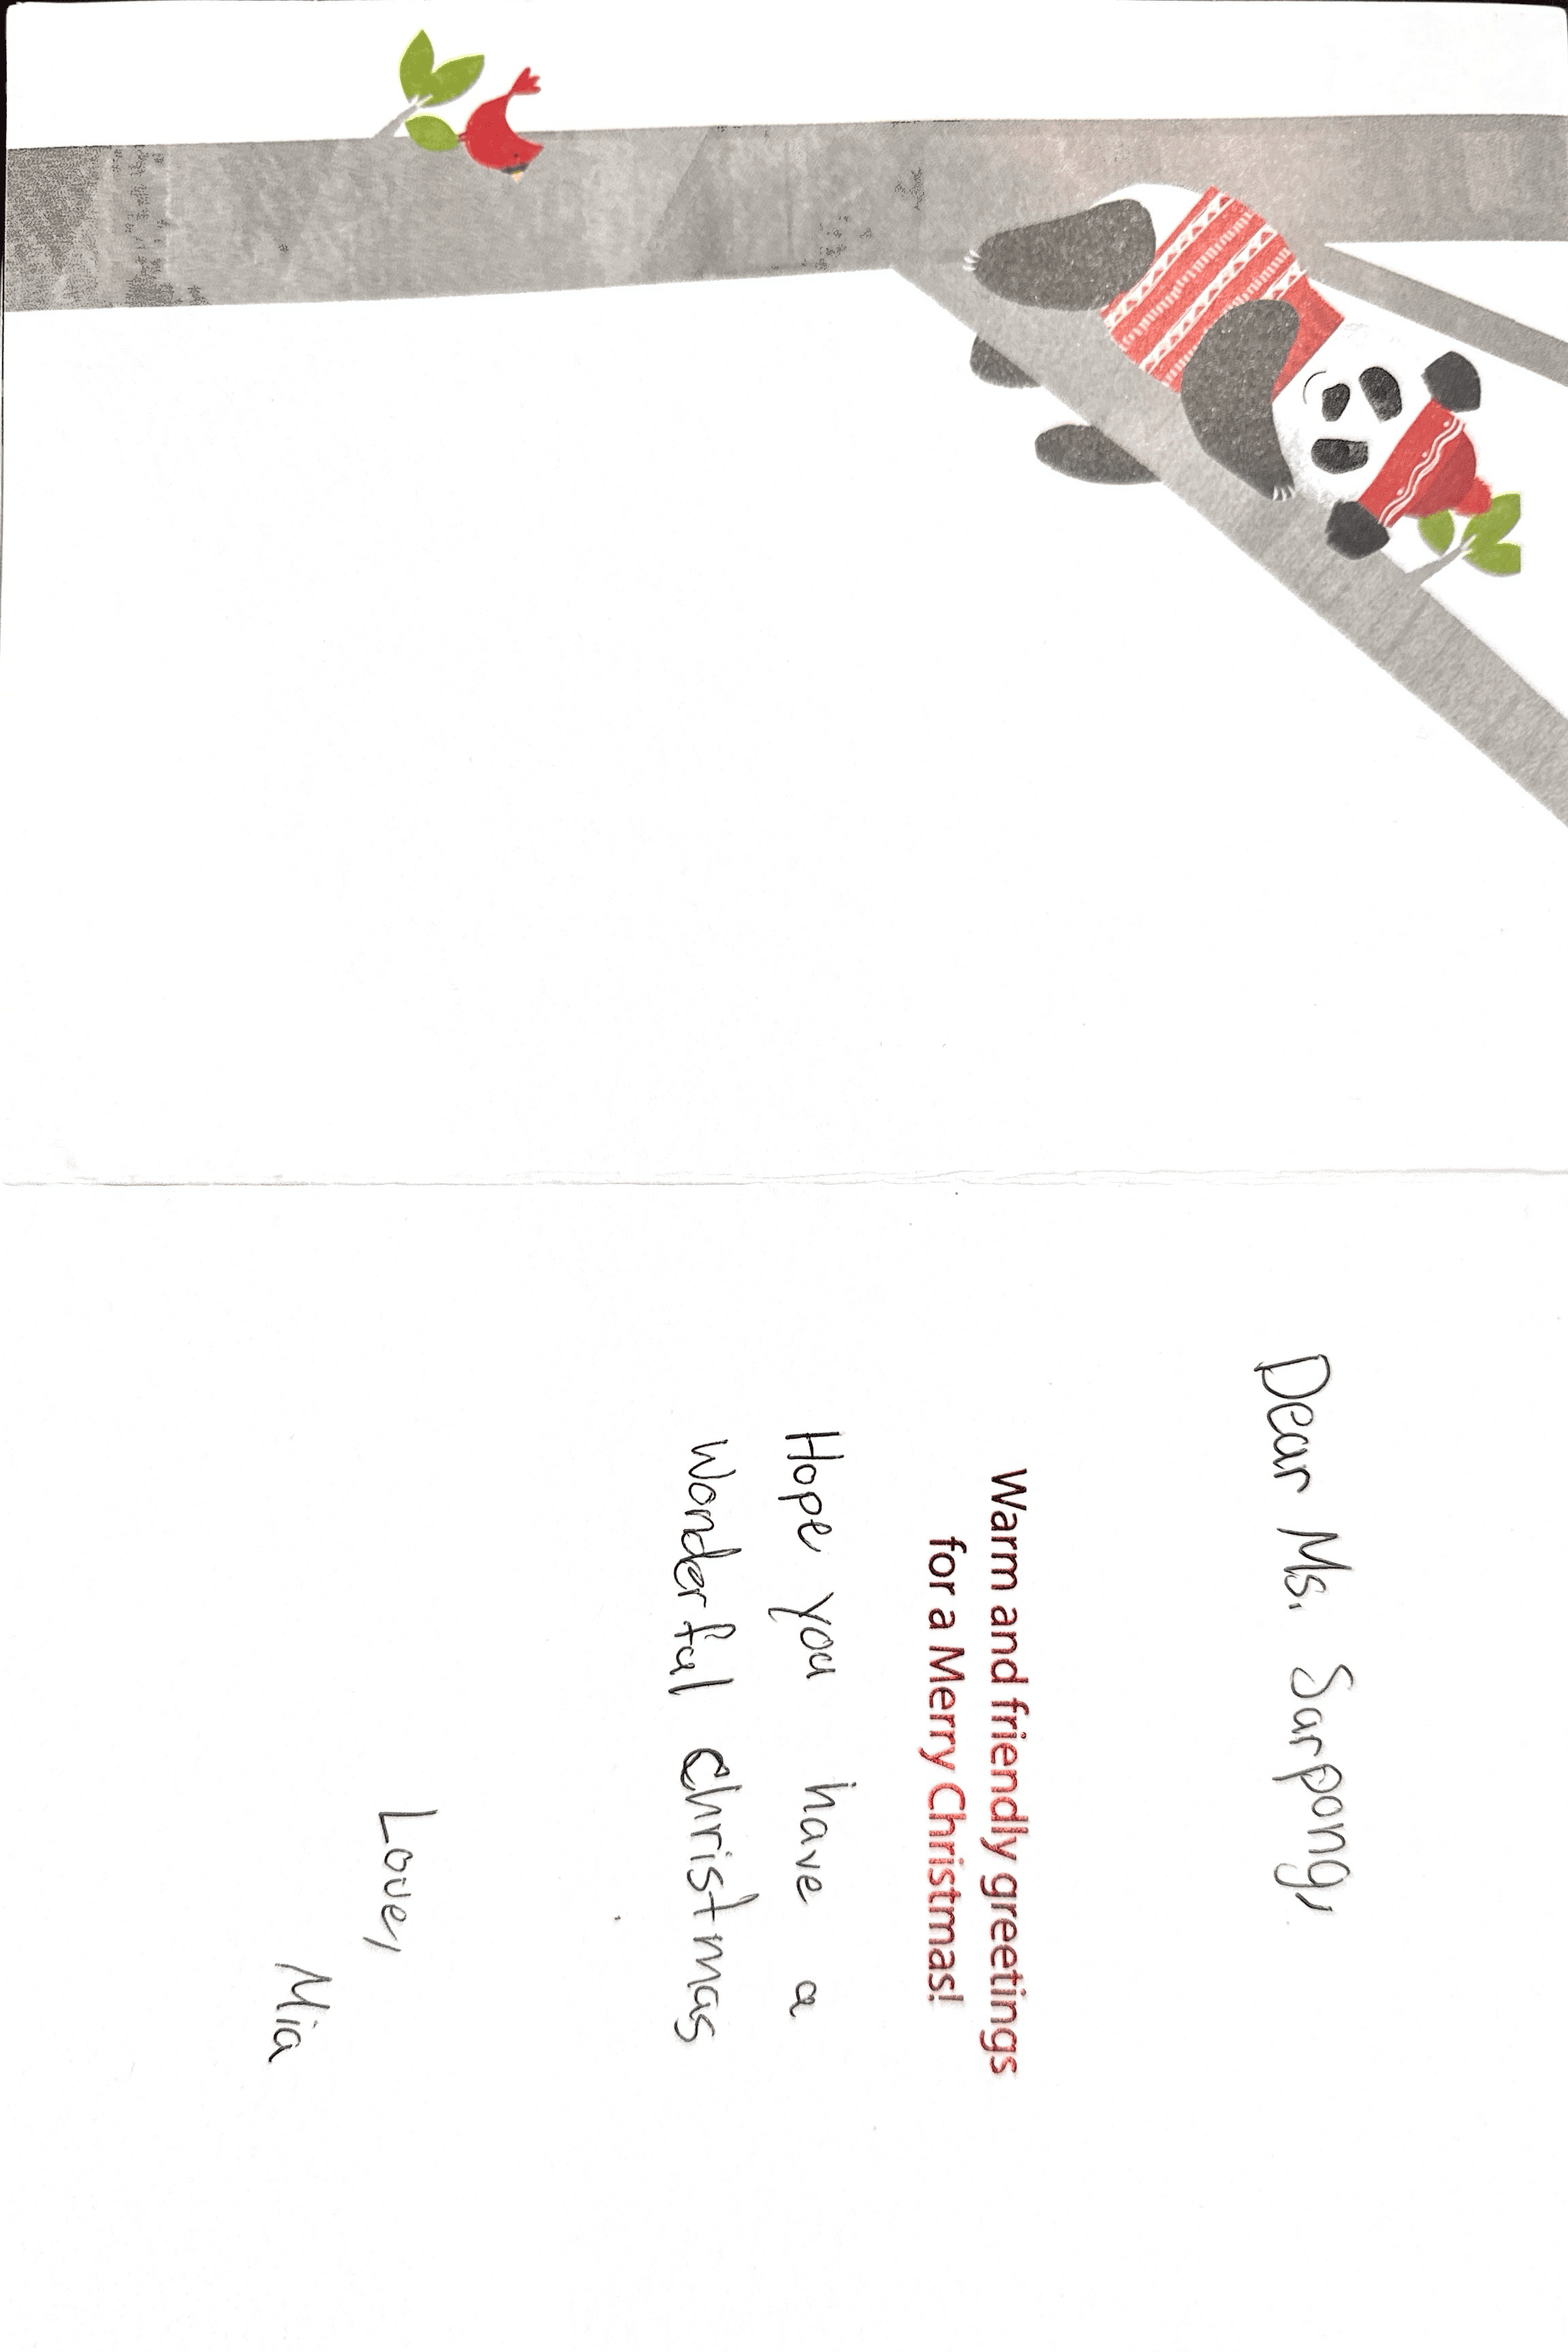 Dear Ms. Sarpong,
Warm and friendly greetings
for a Merry Christmas!
Hope you have a
Wonderful Christmas
Love,
Mia